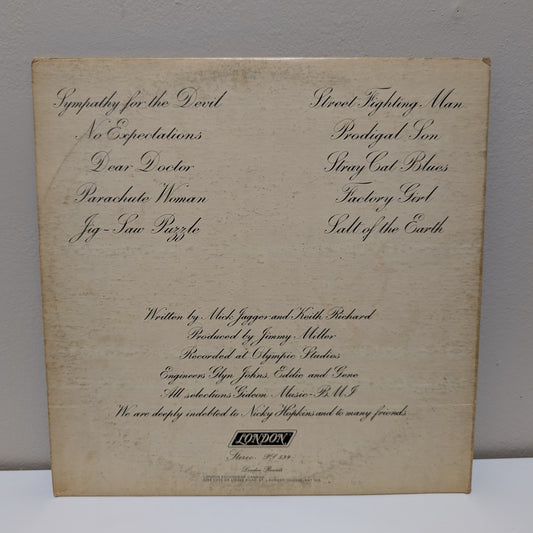 Sympathy for the Devil
No Expectations
Dear Doctor
Parachute Woman
Jig-Saw Puzzle
Street Fighting Man
Prodigal Son
Stray Cat Blues
Factory Girl
Salt of the Earth
Written by Mick Jagger and Keith Richard
Produced by Jimmy Miller
Recorded at Olympic Studios
Engineers Glyn Johns, Eddie and Gene
All selections Gideon Music-BMI
We are deeply indebted to Nicky Hopkins and to many friends
LONDON
Stereo PS 539
London Records